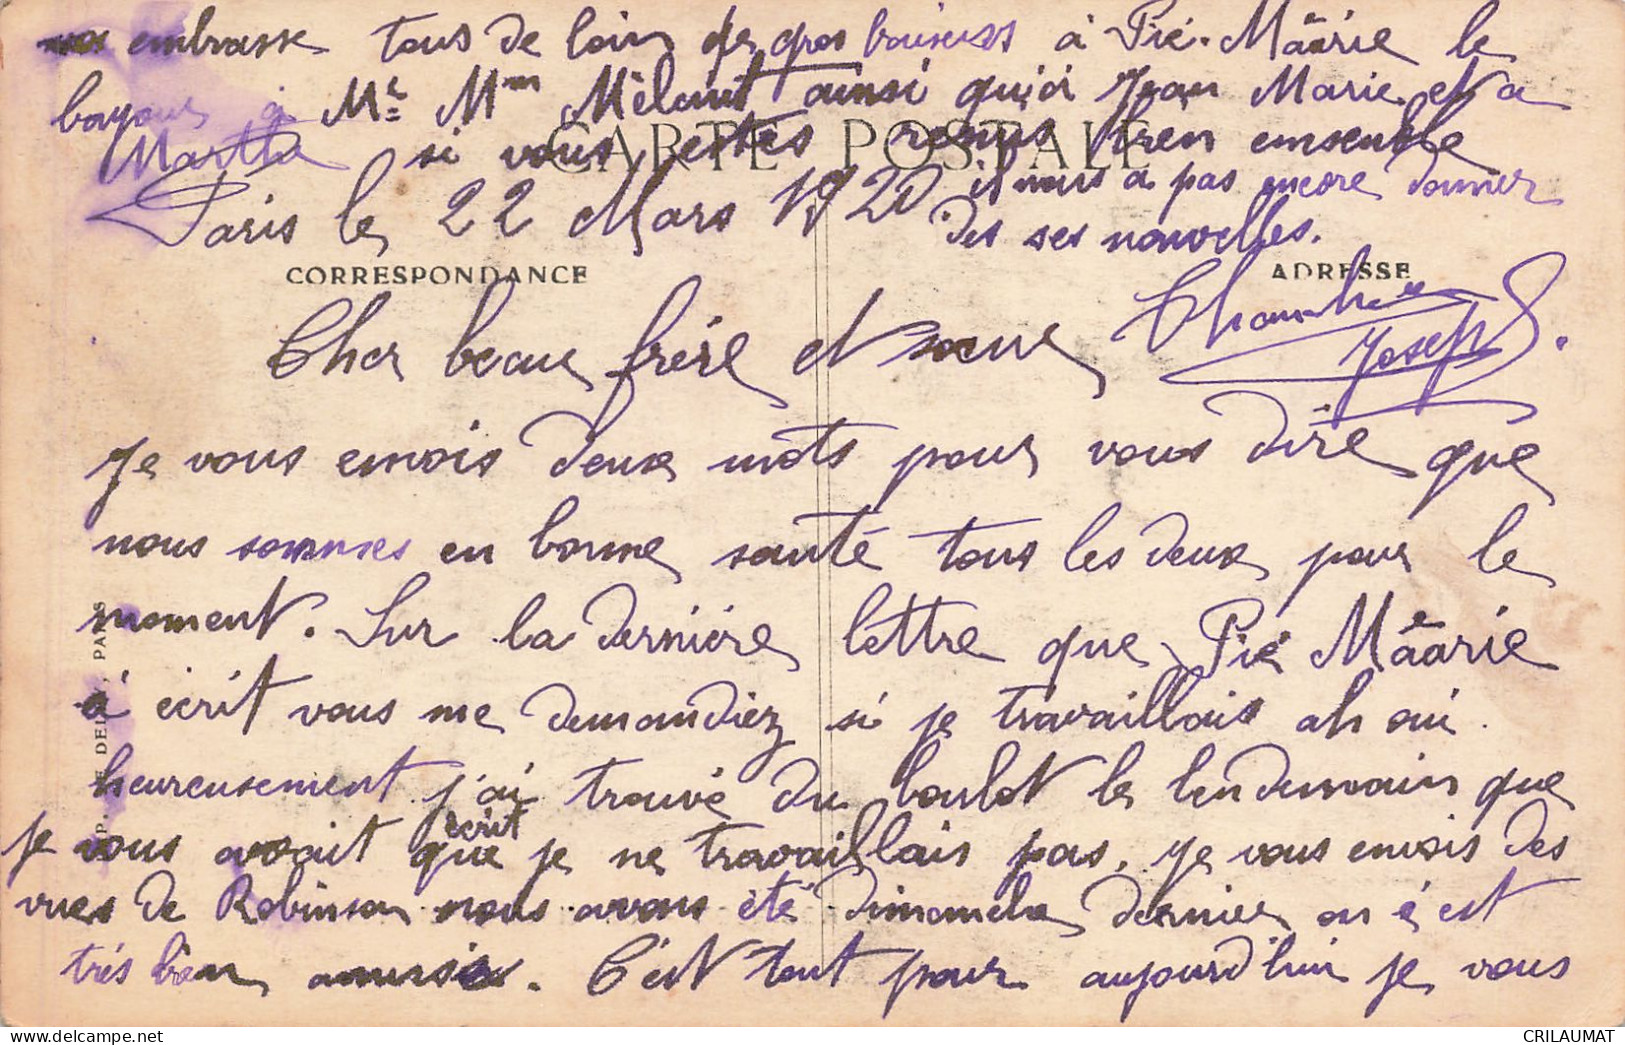 embrasse tous de loin de gros baisers à Pié. Mâârie le
à Mr Mme ainsi qu'à Jean Marie et a
Martha si vous estes remus bren ensemble
CARTE POSTALE
il nous a pas encore donner
Paris le 22 Mars 1920 Des ses nouvelles.
CORRESPONDANCE ADRESSE
Cher beau frére et soeur
Joseph
Je vous envois deux mots pour vous dire que
nous sommes en bonne santé tous les deux pour le
moment. Sur la derniére lettre que Pié Mâârie
à écrit vous me demandiez si je travaillais ah oui.
heureusement j'ai trouvé du boulot le lendemain que
je vous avait écrit que je ne travaillais pas, je vous envois des
vues de Robinson nous avons été dimanche dernier on é est
trés bien amusé. C'est tout pour aujourd'hui je vous
PARIS
CRILAUMAT